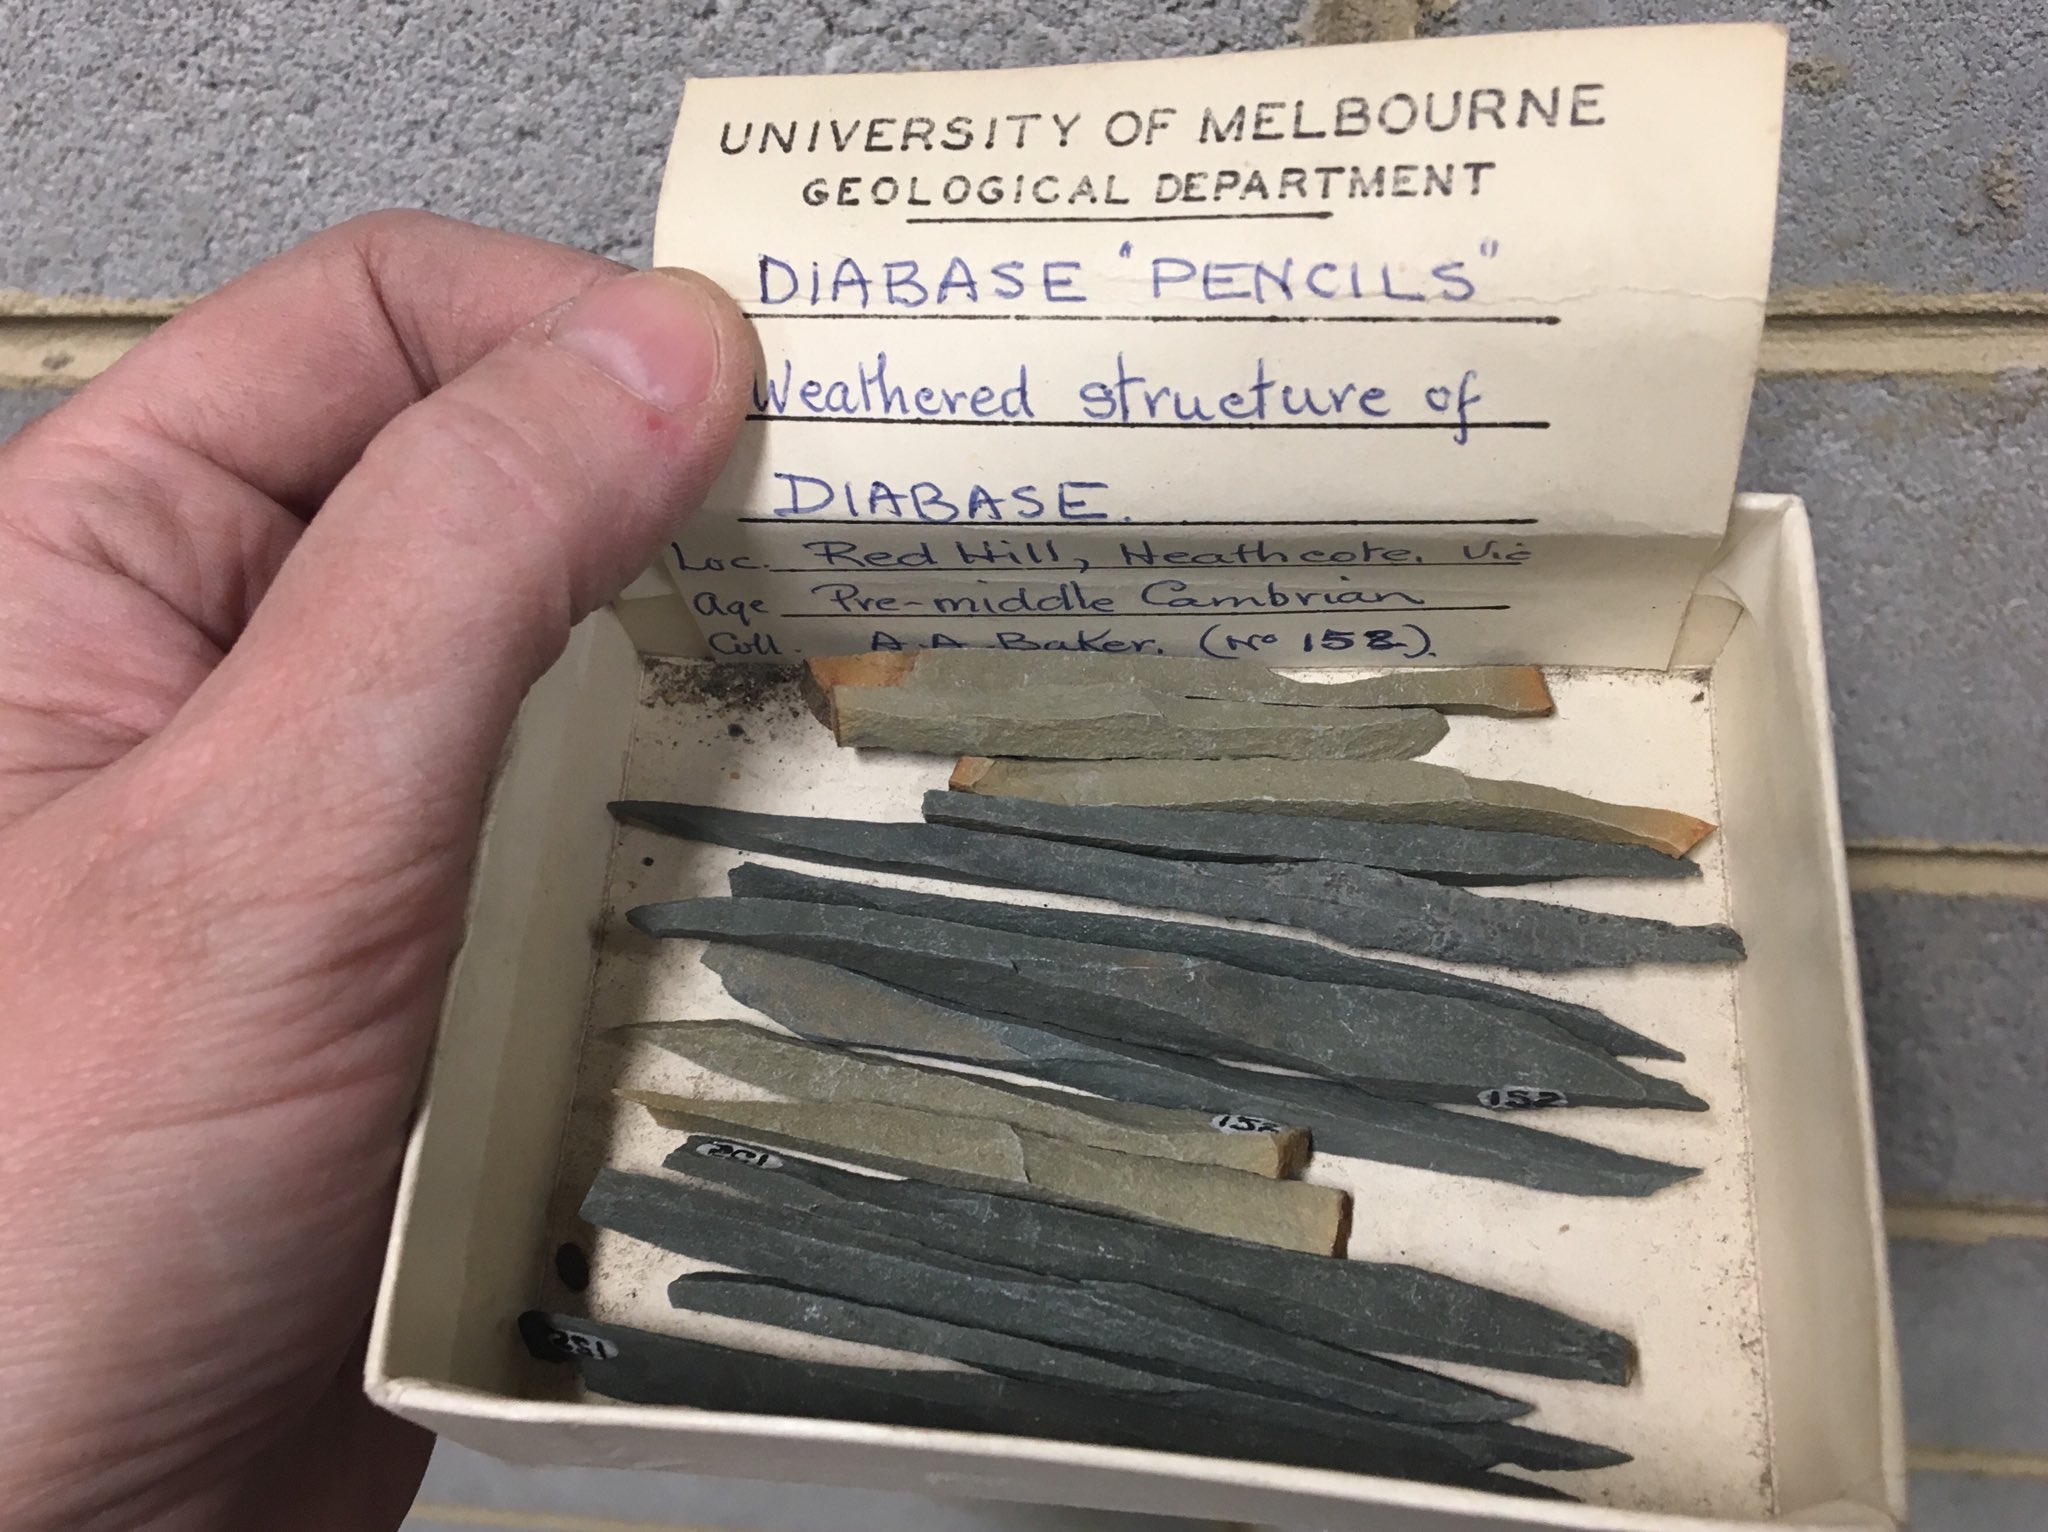 UNIVERSITY OF MELBOURNE
GEOLOGICAL DEPARTMENT
DIABASE "PENCILS"
Weathered structure of
DIABASE.
Loc. Red Hill, Heathcote. Vic
Age Pre-middle Cambrian
Coll. A.A. Baker. (No 152).
152
152
152
152